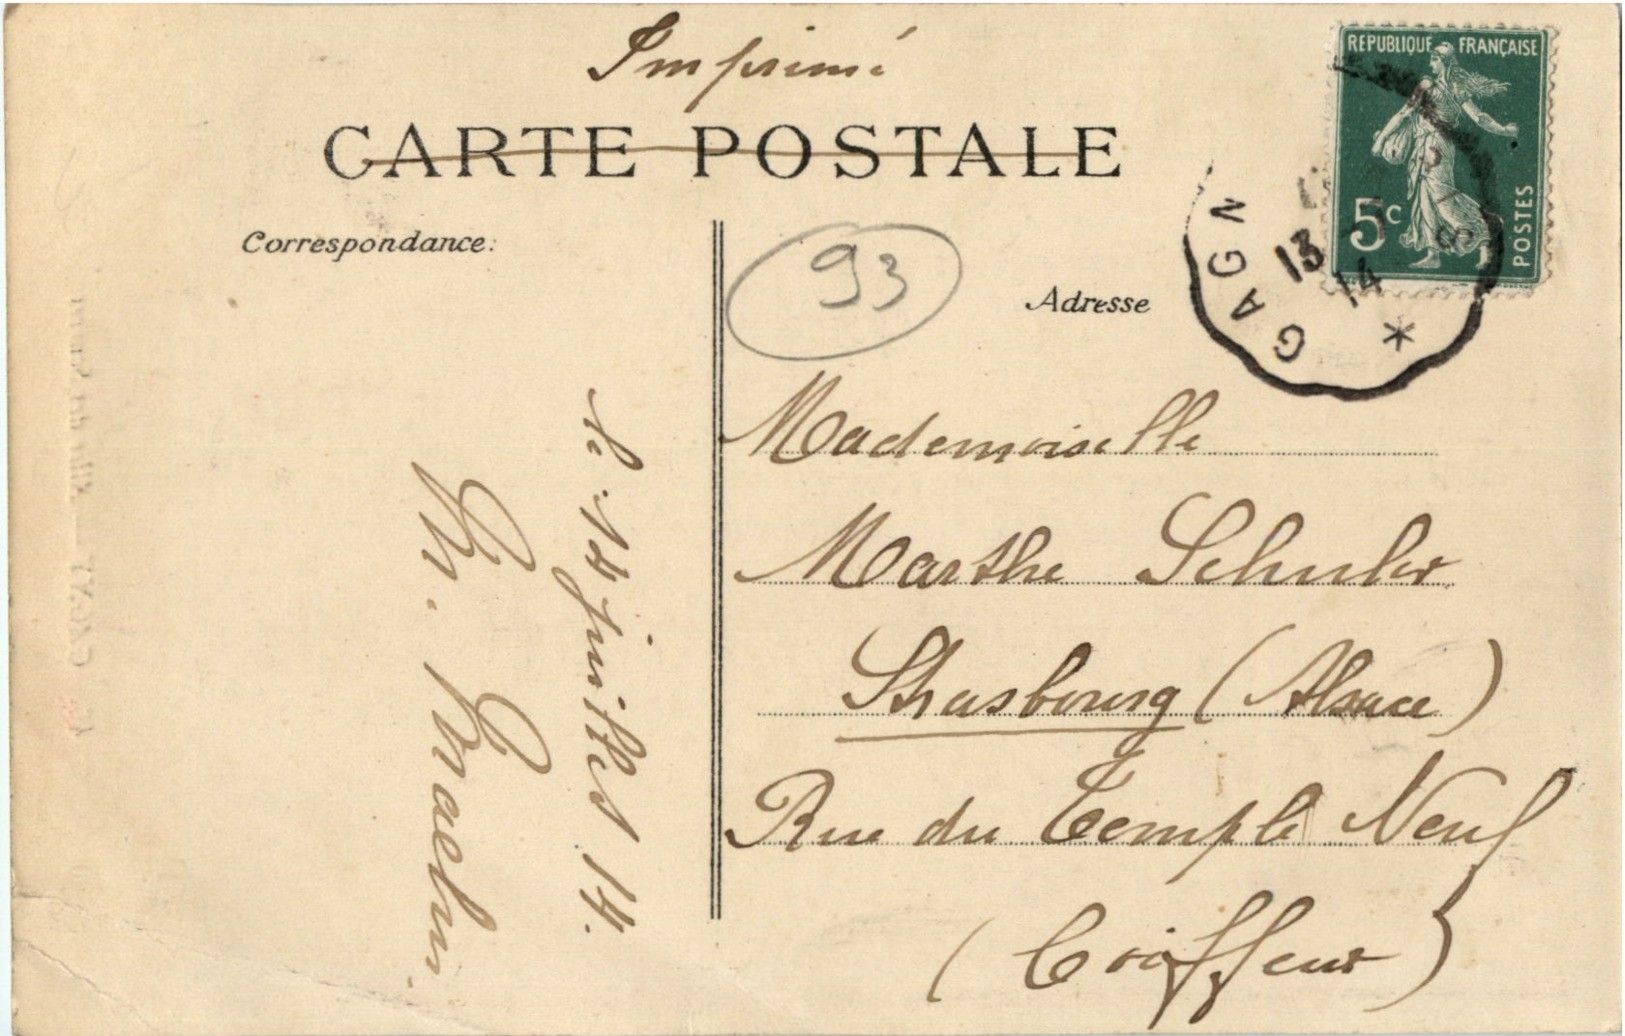 Imprimé
CARTE POSTALE
REPUBLIQUE FRANÇAISE
5c
POSTES
GAGN
13
14
*
Correspondance:
93
Adresse
Mademoiselle
Marthe Schuler
Strasbourg (Alsace)
Rue du Temple Neuf
(Coiffeur)
le 15 juillet 14.